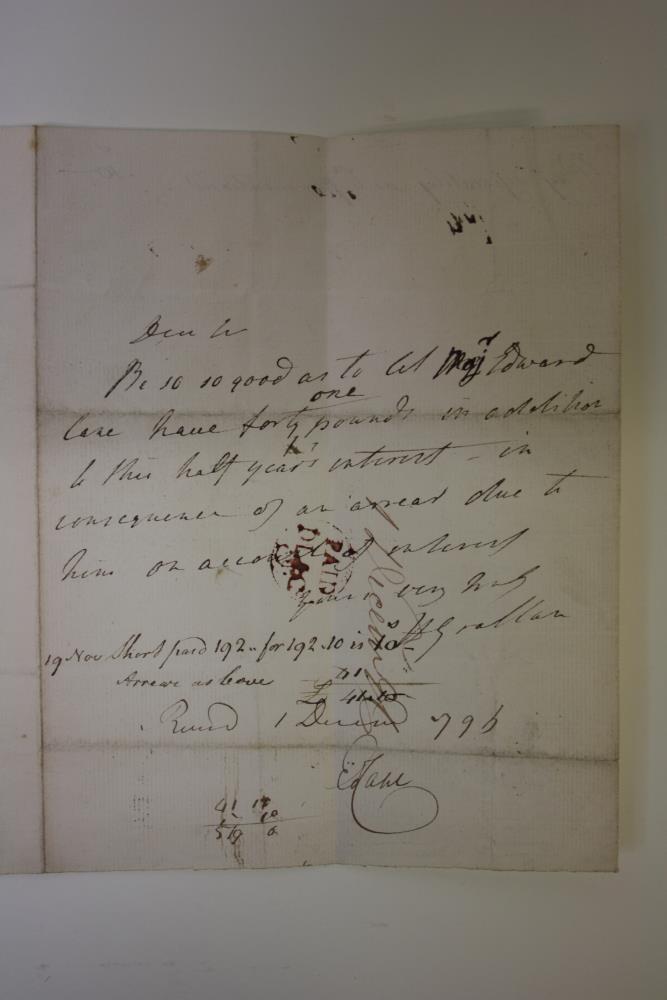 Dear Sir
Be so so good as to let Maj.r Edward
Cane have forty one pounds in addition
to this half year's interest – in
consequence of an arrear due to
him on account of interest
yours very truly
H Grattan
19 Nov Short paid 192.. for 192.10 is 10s
Arrear as bove 41
£ 41.10
Received 1 Decem 796
E Cane
41 10